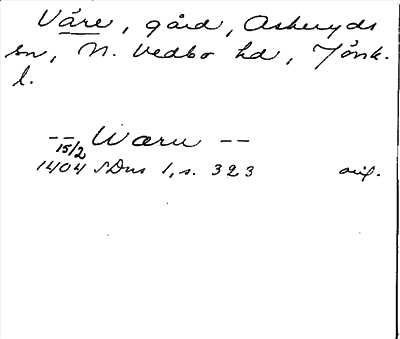 Våre, gård, Askeryds
sn, N. Vedbo hd, Jönk.
l.
-- Waru --
15/2
1404 SDns 1, s. 323 orig.